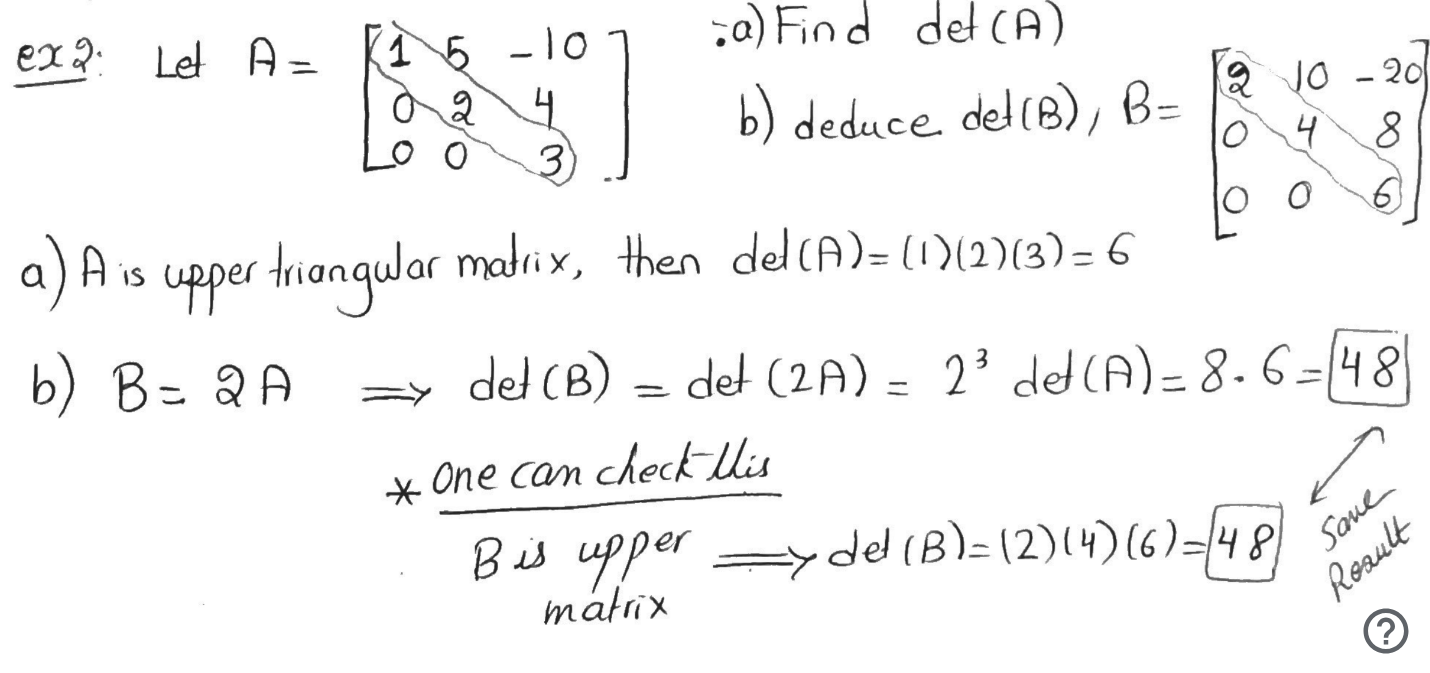 ex 2: Let A = [1 5 -10 :a) Find det(A)
0 2 4 b) deduce det(B), B = [2 10 -20
0 0 3] 0 4 8
0 0 6]
a) A is upper triangular matrix, then det(A) = (1)(2)(3) = 6
b) B = 2A ⟹ det(B) = det(2A) = 2³ det(A) = 8 . 6 = 48
* One can check this
B is upper matrix ⟹ det(B) = (2)(4)(6) = 48
Same
Result
?